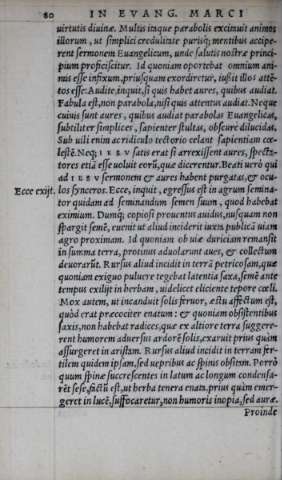 80 IN EVANG. MARCI
uirtutis diuinæ. Multis itaque parabolis excimuit animos
illorum, ut simplici credulitate purisq́; mentibus accipe-
rent sermonem Euangelicum, unde salutis nostræ princi-
pium proficiscitur. Id quoniam oportebat omnium ani-
mis esse infixum, priusquam exordiretur, iussit illos attē-
tos esse: Audite, inquit, si quis habet aures, quibus audiat.
Fabula est, non parabola, nisi quis attentus audiat. Neque
cuiuis sunt aures, quibus audiat parabolas Euangelicas,
subtiliter simplices, sapienter stultas, obscure dilucidas.
Sub uili enim acridiculo tectorio celant sapientiam cœ-
lestē. Neq́; IESV satis erat si arrexissent aures, specta-
tores etiā esse uoluit eorū, quæ dicerentur. Beati uerò qui
ad IESV sermonem & aures habent purgatas, & ocu-
Ecce exijt. los synceros. Ecce, inquit, egressus est in agrum semina-
tor quidam ad seminandum semen suum, quod habebat
eximium. Dumq́; copiosi prouentus auidus, nusquam non
spargit semē, euenit ut aliud inciderit iuxta publicā uiam
agro proximam. Id quoniam ob uiæ duriciam remansit
in summa terra, protinus aduolarunt aues, & collectum
deuorarūt. Rursus aliud incidit in terrā petricosam, quæ
quoniam exiguo puluere tegebat latentia saxa, semē ante
tempus exilijt in herbam, uidelicet eliciente tepore cœli.
Mox autem, ut incanduit solis feruor, æstu affectum est,
quòd erat præcociter enatum: & quoniam obsistentibus
saxis, non habebat radices, quæ ex altiore terra suggere-
rent humorem aduersus ardorē solis, exaruit prius quàm
assurgeret in aristam. Rursus aliud incidit in terram fer-
tilem quidem ipsam, sed uepribus ac spinis obsitam. Porrò
quum spinæ succrescentes in latum ac longum condensa-
rēt sese, factū est, ut herba tenera enata, prius quàm emer-
geret in lucē, suffocaretur, non humoris inopia, sed auræ.
Proinde